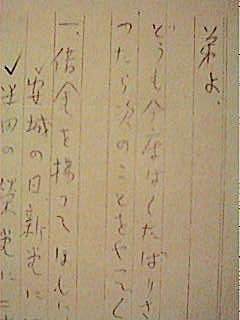 弟よ、
どうも今度はくたばりさ
つたら次のことをやつてく
一、借金を払つてほしい
✓安城の日新堂に
✓半田の榮堂に二